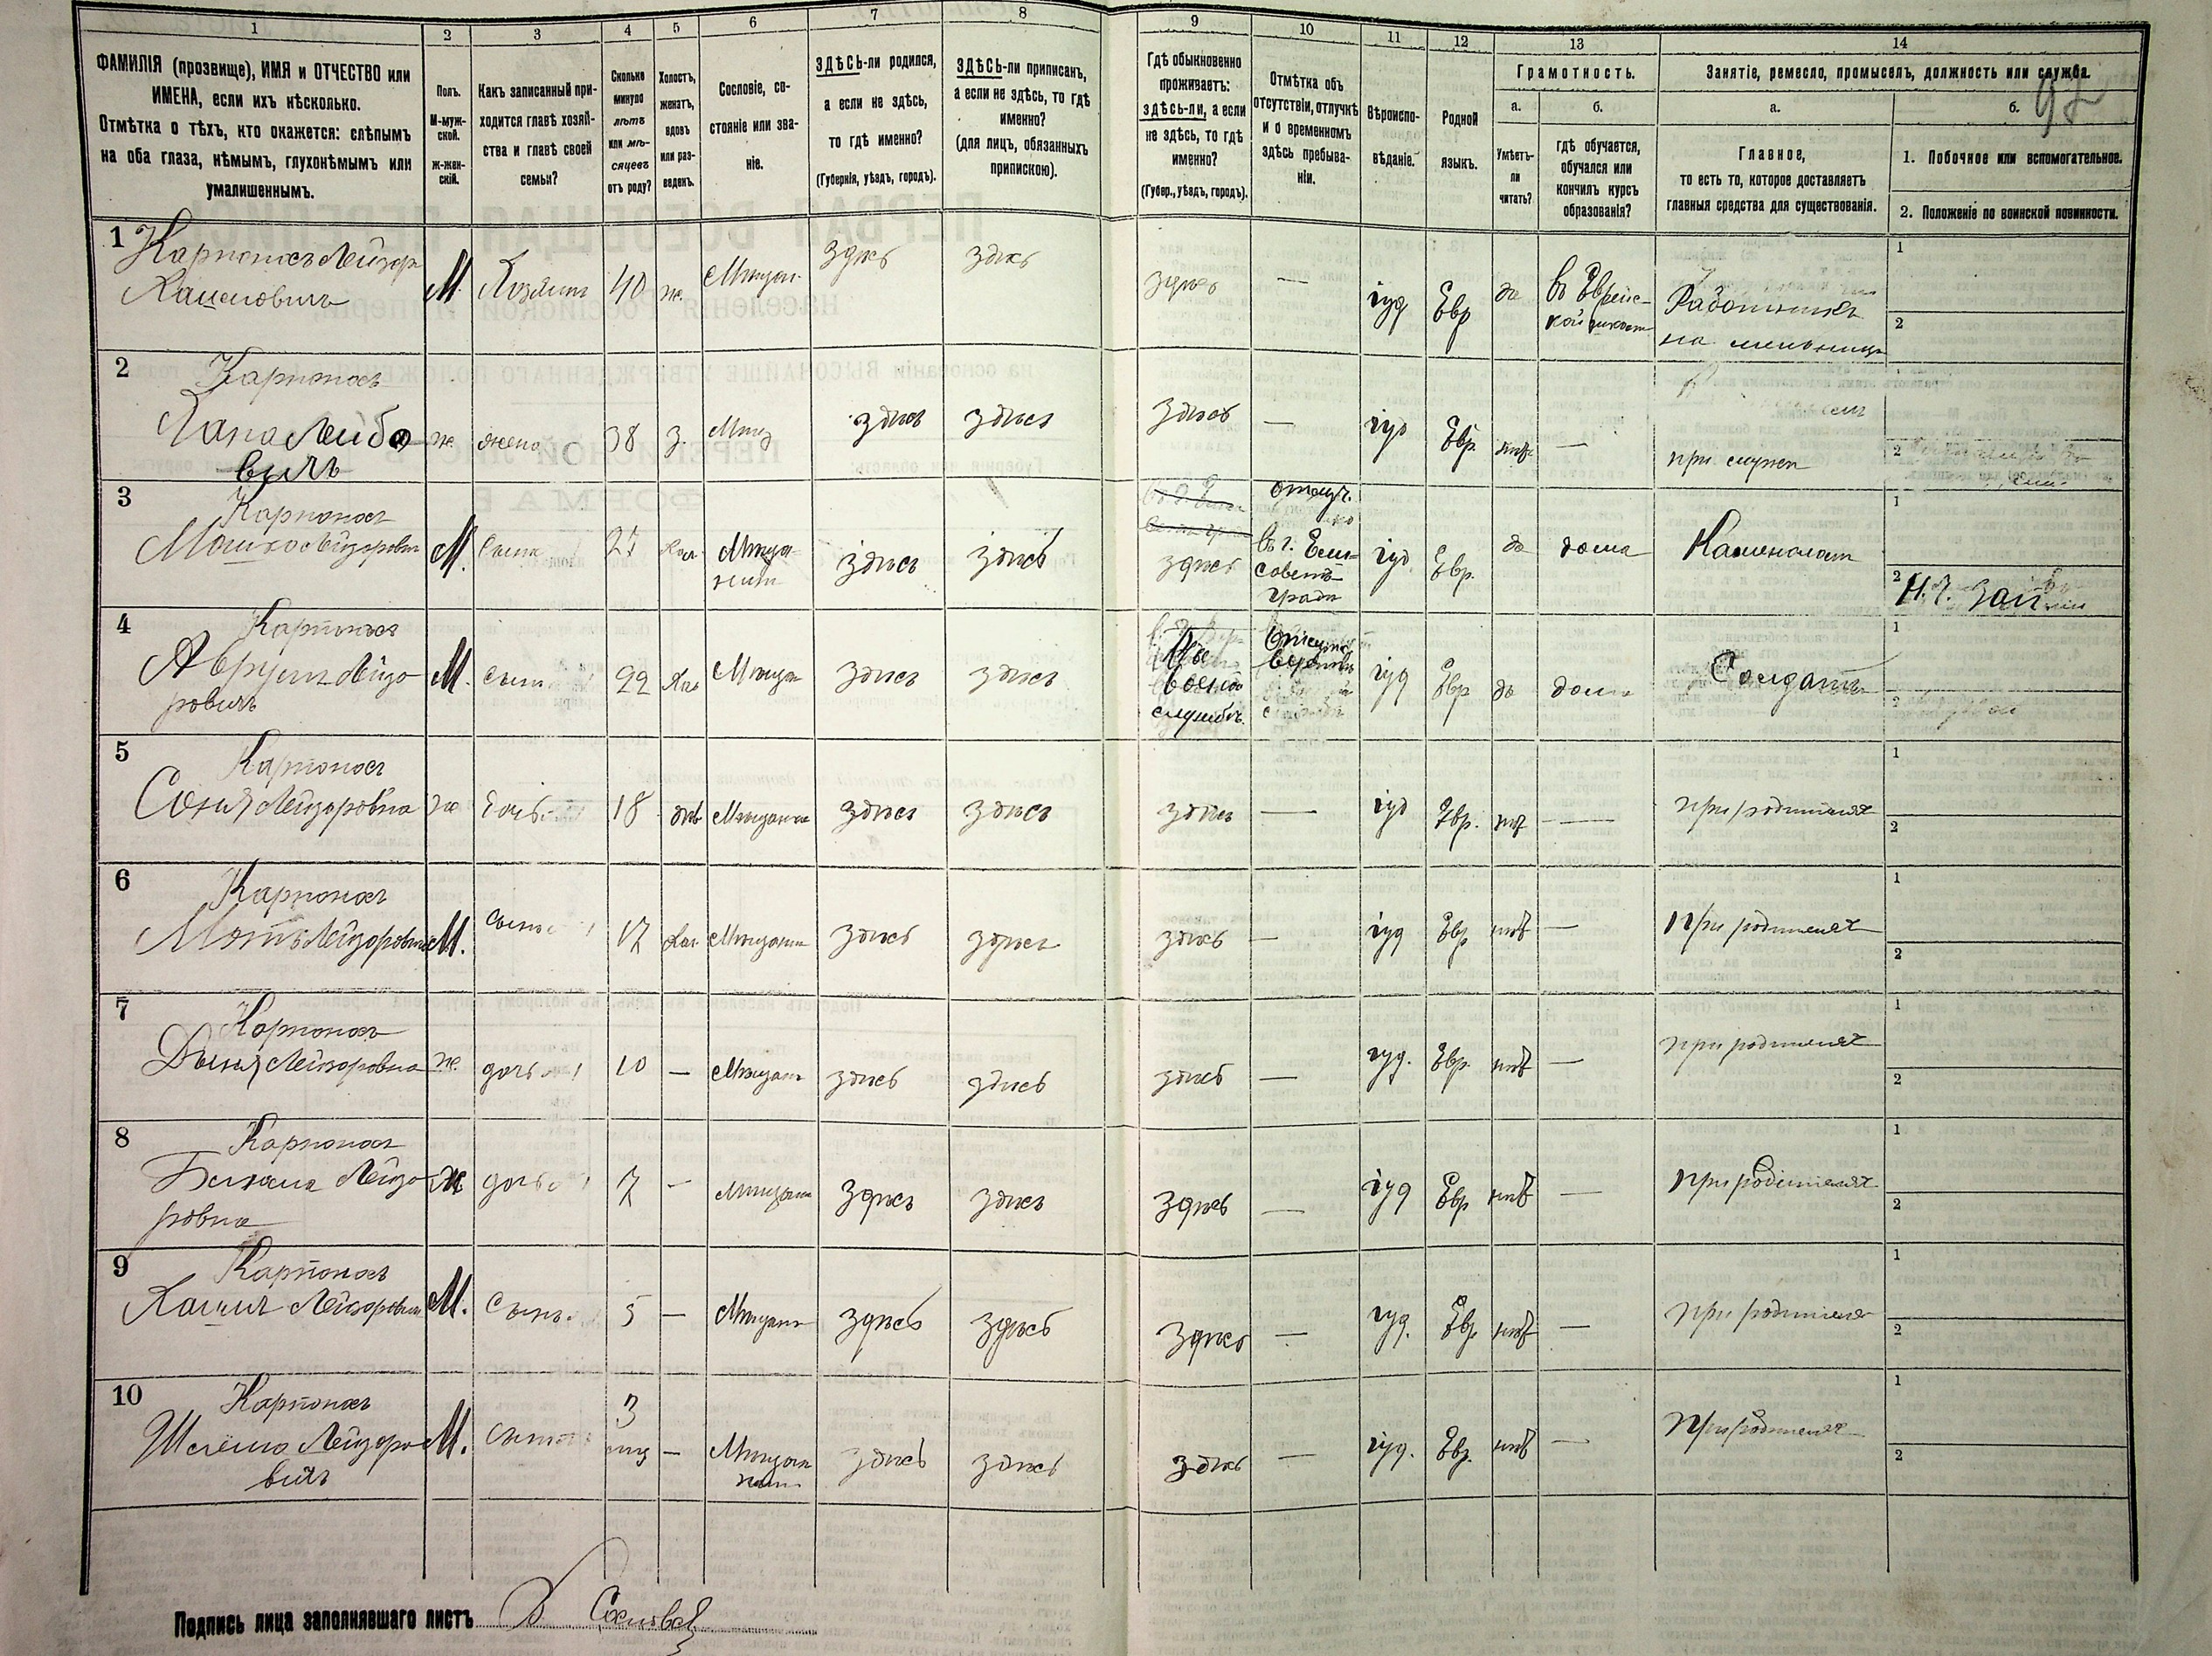 1 2 3 4 5 6 7 8 9 10 11 12 13 14
ФАМИЛІЯ (прозвище), ИМЯ и ОТЧЕСТВО или
ИМЕНА, если ихъ нѣсколько.
Отмѣтка о тѣхъ, кто окажется: слѣпымъ
на оба глаза, нѣмымъ, глухонѣмымъ или
умалишеннымъ.
Полъ.
М-муж-
ской.
ж-жен-
скій.
Какъ записанный при-
ходится главѣ хозяй-
ства и главѣ своей
семьи?
Сколько
минуло
лѣтъ
или мѣ-
сяцевъ
отъ роду?
Холостъ,
женатъ,
вдовъ
или раз-
веденъ.
Сословіе, со-
стояніе или зва-
ніе.
ЗДѢСЬ-ли родился,
а если не здѣсь,
то гдѣ именно?
(Губернія, уѣздъ, городъ).
ЗДѢСЬ-ли приписанъ,
а если не здѣсь, то гдѣ
именно?
(для лицъ, обязанныхъ
припискою).
Гдѣ обыкновенно
проживаетъ:
здѣсь-ли, а если
не здѣсь, то гдѣ
именно?
(Губер., уѣздъ, городъ).
Отмѣтка объ
отсутствіи, отлучкѣ
и о временномъ
здѣсь пребыва-
ніи.
Вѣроиспо-
вѣданіе.
Родной
языкъ.
Грамотность.
а.
Умѣетъ-
ли
читать?
б.
гдѣ обучается,
обучался или
кончилъ курсъ
образованія?
Занятіе, ремесло, промыселъ, должность или служба.
97
а.
Главное,
то есть то, которое доставляетъ
главныя средства для существованія.
б.
1. Побочное или вспомогательное.
2. Положеніе по воинской повинности.
1 Карпоносъ Лейзоръ
М. Хозяинъ 40 ж. Мѣщан. здѣсь здѣсь здѣсь — іуд Евр да въ Еврейс-
кой школѣ
Работникъ
на мельницѣ
1
2
2 Карпоносъ
Хана Лейбо
вичъ
ж жена 38 з. Мѣщ здѣсь здѣсь здѣсь — іуд Евр. нѣт —
при мужѣ
1
2
3 Карпоносъ
Мошко Лейзоровичъ
М. Сынъ 21 Хол. Мѣща-
нинъ
здѣсь здѣсь здѣсь
отлуч.
въ г. Ели-
саветъ-
градъ
іуд Евр. да дома
1
2
4 Карпоносъ
Аврумъ Лейзо
ровичъ
М. сынъ 22 Хол Мѣщан здѣсь здѣсь
на
военной
службѣ.
іуд Евр да дома Солдатъ
1
2
5 Карпоносъ
Соня Лейзоровна ж дочь 18 дѣв Мѣщанка здѣсь здѣсь здѣсь — іуд Евр. нѣт — при родителях
1
2
6 Карпоносъ
Лейзоровичъ М. сынъ 17 Хол Мѣщанин здѣсь здѣсь здѣсь — іуд Евр нѣт — при родителях
1
2
7 Карпоносъ
Лейзоровна ж. дочь 10 — Мѣщанк здѣсь здѣсь здѣсь — іуд. Евр. нѣт — при родителях
1
2
8 Карпоносъ
Лейзо
ровна
ж дочь 7 — Мѣщанк здѣсь здѣсь здѣсь — іуд Евр нѣт — при родителях
1
2
9 Карпоносъ
Лейзоровичъ М. Сынъ 5 — Мѣщан здѣсь здѣсь здѣсь — іуд. Евр нѣт — при родителях
1
2
10 Карпоносъ
Шлёмо Лейзоро
вичъ
М. Сынъ 3
— Мѣщан
нин
здѣсь здѣсь здѣсь — іуд. Евр. нѣт — При родителях
1
2
Подпись лица заполнявшаго листъ